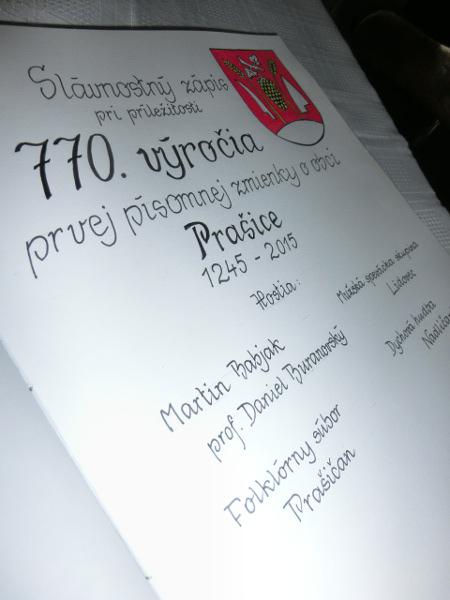 Slávnostný zápis
pri príležitosti
770. výročia
prvej písomnej zmienky o obci
Prašice
1245 - 2015
Hostia:
Martin Babjak
prof. Daniel Buranovský
Folklórny súbor
Prašičan
Mužská spevácka skupina
Lipovec
Dychová hudba